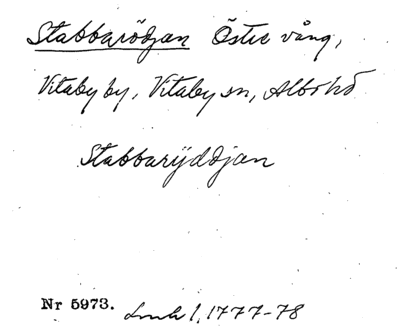 Stabbarödjan Öster vång,
Vitaby by, Vitaby sn, Albo hd
Stabbarÿddjan
Nr 5973. Lmk 1, 1777-78